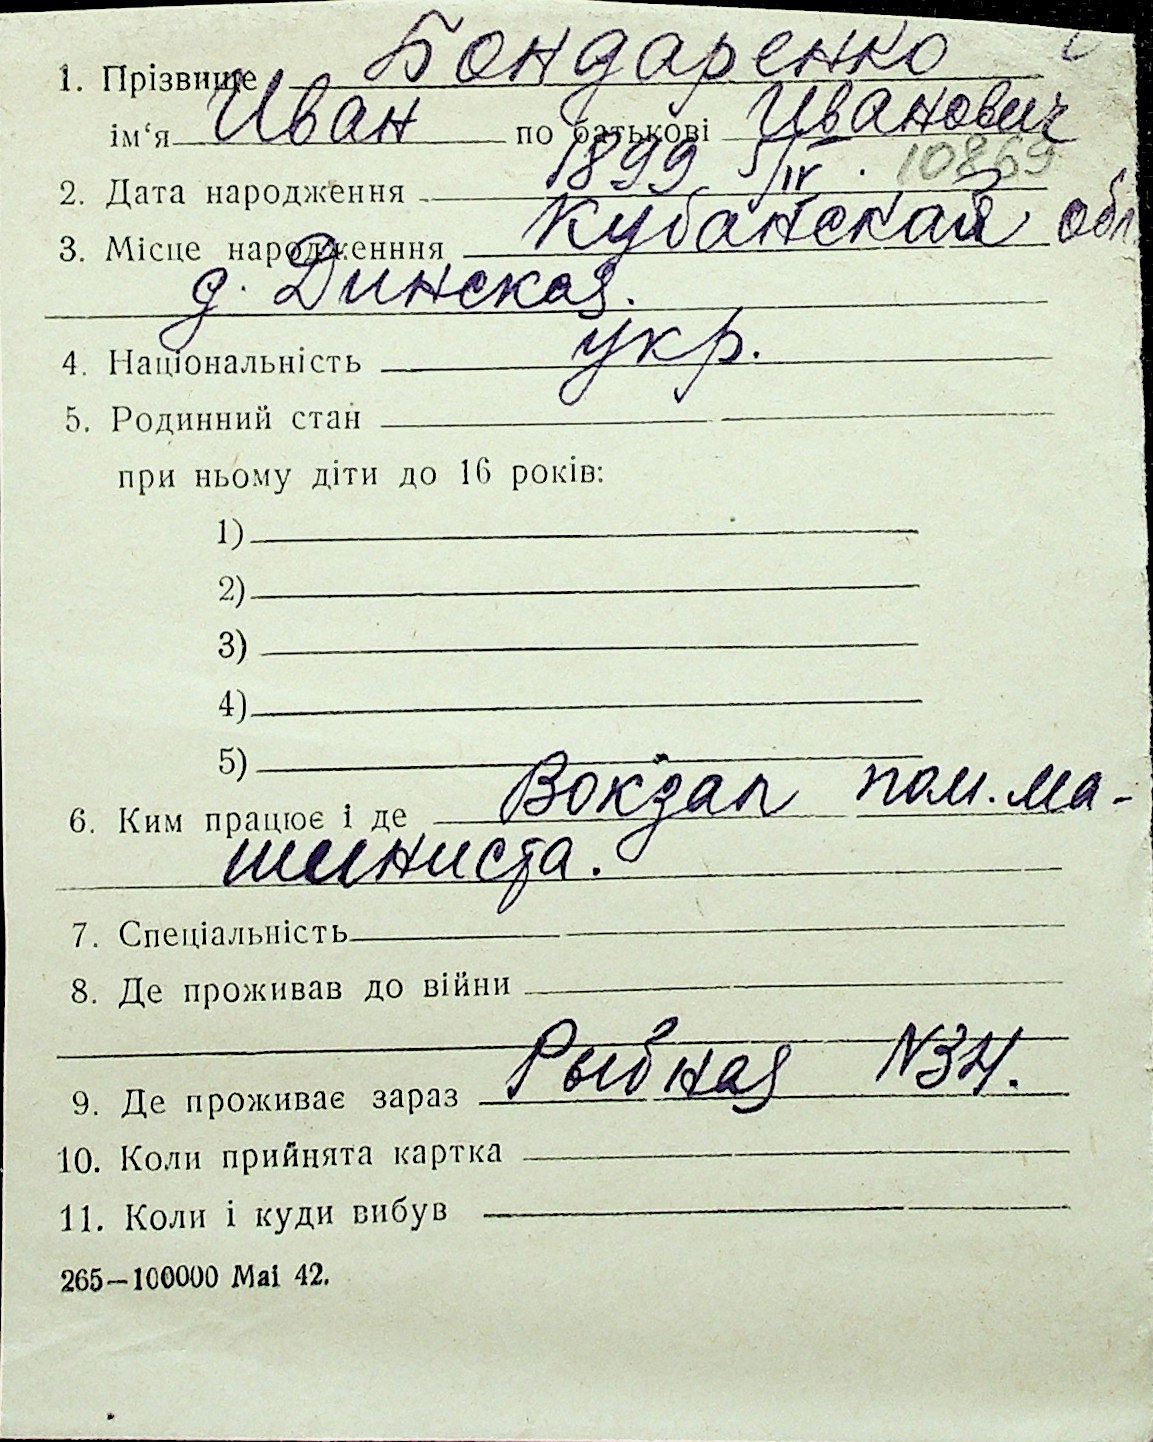 1. Прізвище Бондаренко
ім‘я Иван по батькові Иванович
10869
2. Дата народження 1899 5/IV.
3. Місце народженння Кубанской обл.
д. Динская.
4. Національність укр.
5. Родинний стан
при ньому діти до 16 років:
1)
2)
3)
4)
5)
6. Ким працює і де Вокзал пом. ма-
шиниста.
7. Спеціальність
8. Де проживав до війни
9. Де проживає зараз Рыбная N34.
10. Коли прийнята картка
11. Коли і куди вибув
265—100000 Mai 42.